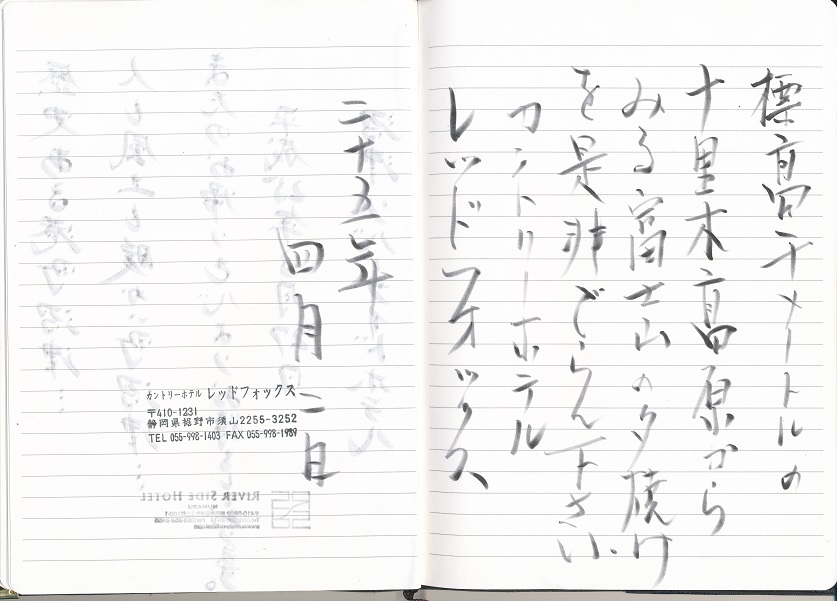 標高千メートルの
十里木高原から
みる富士山の夕焼け
を是非ごらん下さい
カントリーホテル
レッドフォックス
二十五年
四月二日
カントリーホテル レッドフォックス
〒410-1231
静岡県裾野市須山2255-3252
TEL 055-998-1403 FAX 055-998-1989
RIVER SIDE HOTEL